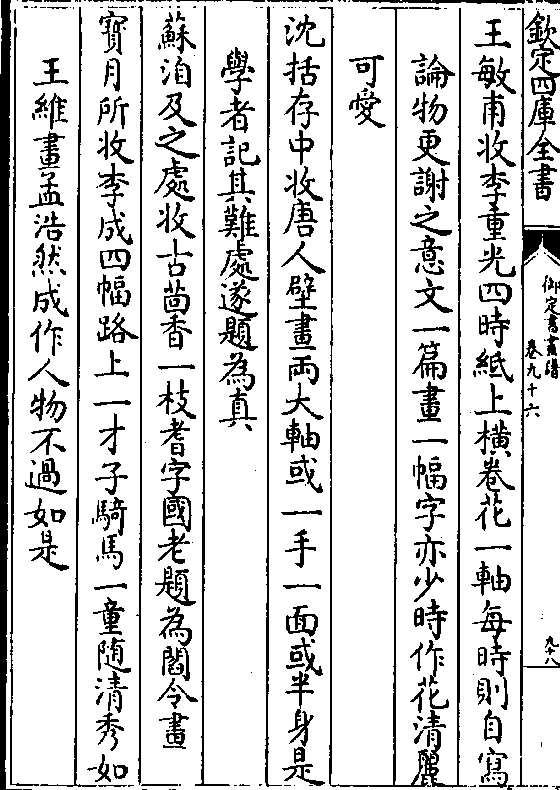 欽定四庫全書
御定書畫譜
卷九十六
九十八
王敏甫收李重光四時紙上橫卷花一軸每時則自寫
論物更謝之意文一篇畫一幅字亦少時作花清麗
可愛
沈括存中收唐人壁畫兩大軸或一手一面或半身是
學者記其難處遂題為真
蘇洎及之處收古茴香一枝耆字國老題為閻令畫
寶月所收李成四幅路上一才子騎馬一童隨清秀如
王維畫孟浩然成作人物不過如是